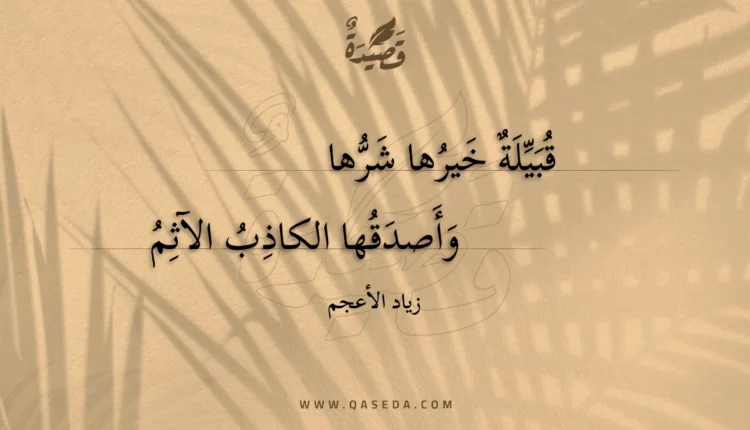 قَصِيدَةٌ
قُبَيِّلَةٌ خَيرُها شَرُّها
وَأَصدَقُها الكاذِبُ الآثِمُ
زياد الأعجم
WWW.QASEDA.COM